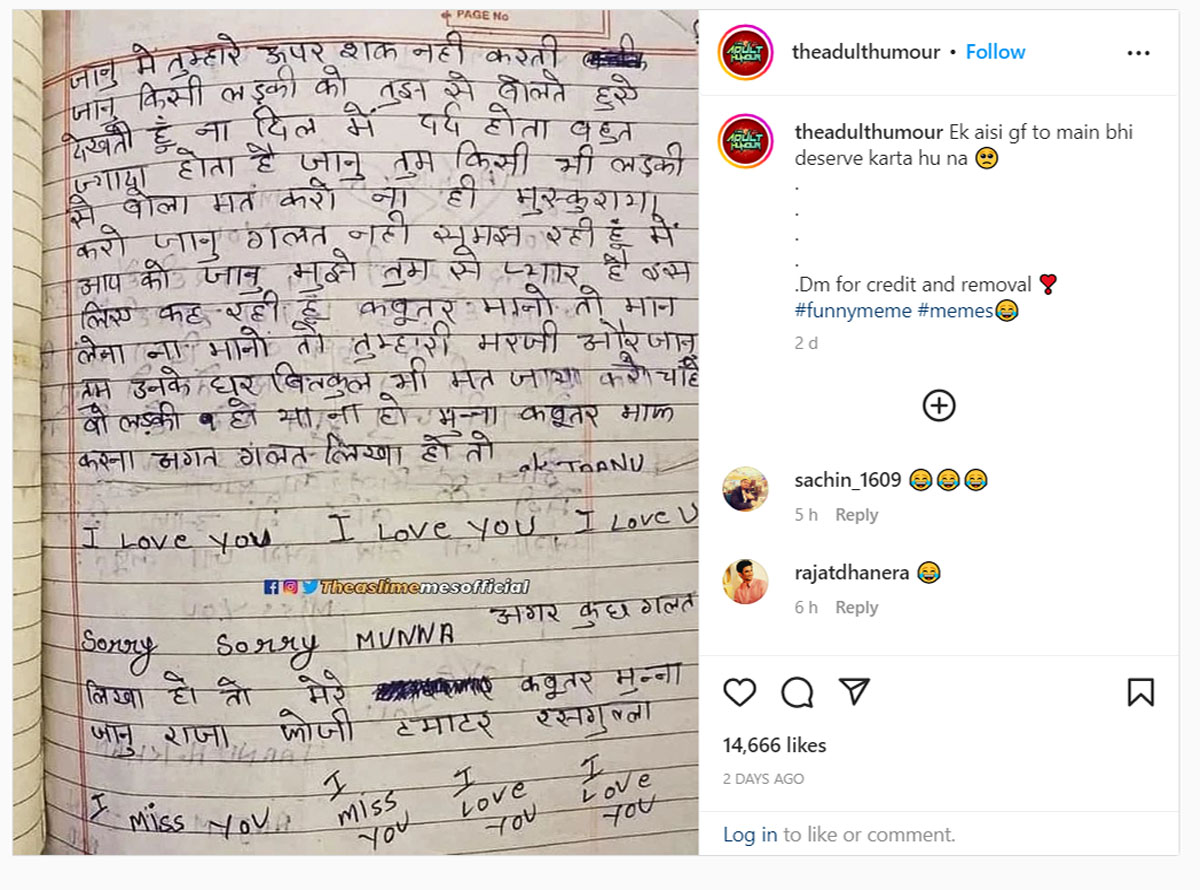 PAGE No
जानु मे तुम्हारे ऊपर शक नही करती
जानु किसी लड़की को तुझ से बोलते हुऐ
देखती हूं ना दिल में दर्द होता बहुत
ज्यादा होता है जानु तुम किसी भी लड़की
से बोला मत करो ना ही मुस्कुराया
करो जानु गलत नही समझ रही हूं में
आप को जानु मुझे तुम से प्यार है इस
लिए कह रही हूं कबूतर मानो तो मान
लेना ना मानो तो तुम्हारी मरजी और जानु
तुम उनके घर बिलकुल भी मत जाया करो चाहे
वो लड़की हो या ना हो मुन्ना कबूतर माफ
करना अगत गलत लिखा हो तो ok JAANU
I Love you I Love you, I Love U
Theaslimemesofficial
Sorry Sorry MUNNA अगर कुछ गलत
लिखा हो तो मेरे कबूतर मुन्ना
जानु राजा फोजी टमाटर रसगुल्ला
I miss you
I miss you
I Love you
I Love you
theadulthumour • Follow
ADULT HUMOUR
theadulthumour Ek aisi gf to main bhi
deserve karta hu na 🥺
.
.
.
.
.Dm for credit and removal ❣️
#funnymeme #memes😂
2 d
sachin_1609 😂😂😂
5 h Reply
rajatdhanera 😂
6 h Reply
14,666 likes
2 DAYS AGO
Log in to like or comment.